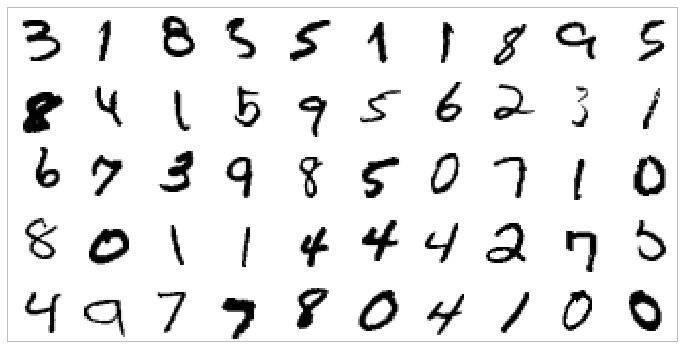 3 1 8 5 5 1 1 8 9 5
8 4 1 5 9 5 6 2 3 1
6 7 3 9 8 5 0 7 1 0
8 0 1 1 4 4 4 2 7 5
4 9 7 7 8 0 4 1 0 0